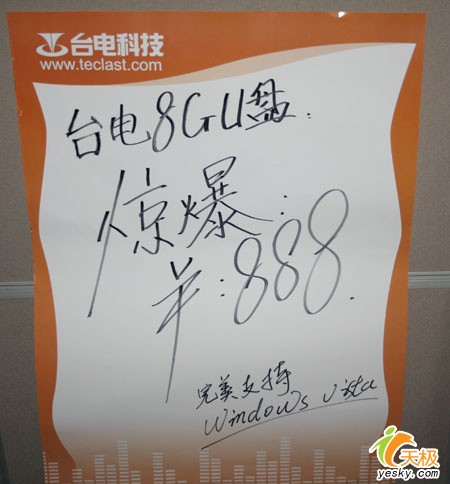 台电科技
www.teclast.com
台电8GU盘:
惊爆:
￥:888.
完美支持
Windows vista
天极
yesky.com